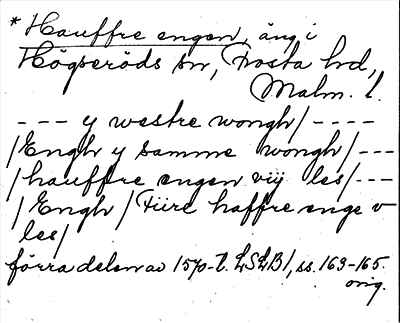 * Hauffre engen, äng i
Högseröds sn, Frosta hd,
Malm. l.
--- y westre wongh/----
/Engh y samme wongh/---
/hauffre engen viij les/---
/Engh/Fiire haffre enge v
les/
förra delen av 1570-t. LSLB1, ss. 163-165.
orig.